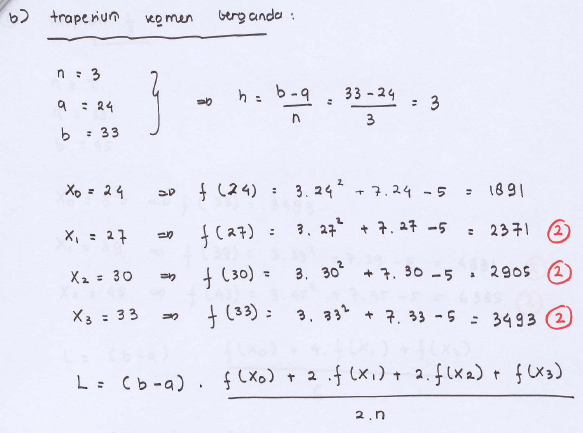 b) trapezium komen berganda :
n = 3
a = 24
b = 33
⇒ h = b-a / n = 33-24 / 3 = 3
x0 = 24 ⇒ f (24) = 3.24² + 7.24 - 5 = 1891
x1 = 27 ⇒ f (27) = 3.27² + 7.27 - 5 = 2371 (2)
x2 = 30 ⇒ f (30) = 3.30² + 7.30 - 5 = 2905 (2)
x3 = 33 ⇒ f (33) = 3.33² + 7.33 - 5 = 3493 (2)
L = (b-a) . f(x0) + 2.f(x1) + 2.f(x2) + f(x3) / 2.n